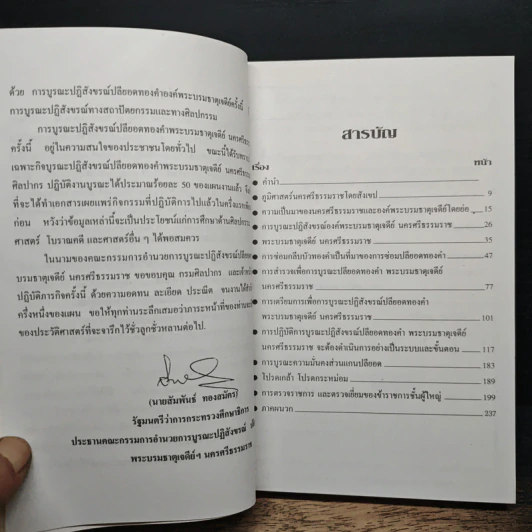 ด้วย การบูรณะปฏิสังขรณ์ปลียอดทองคำองค์พระบรมธาตุเจดีย์ครั้งนี้
การบูรณะปฏิสังขรณ์ทางสถาปัตยกรรมและทางศิลปกรรม
การบูรณะปฏิสังขรณ์ปลียอดทองคำพระบรมธาตุเจดีย์ นครศรีธรรมราช
ครั้งนี้ อยู่ในความสนใจของประชาชนโดยทั่วไป ขณะนี้ได้รับทราบ
เฉพาะกิจบูรณะปฏิสังขรณ์ปลียอดทองคำพระบรมธาตุเจดีย์ นครศรี
ศิลปากร ปฏิบัติงานบูรณะได้ประมาณร้อยละ 50 ของแผนงานแล้ว
ที่จะได้ทำเอกสารเผยแพร่กิจกรรมที่ปฏิบัติการไปแล้วในครึ่งแรก
ก่อน หวังว่าข้อมูลเหล่านี้จะเป็นประโยชน์แก่การศึกษาด้านศิลปกรรม
ศาสตร์ โบราณคดี และศาสตร์อื่น ๆ ได้พอสมควร
ในนามของคณะกรรมการอำนวยการบูรณะปฏิสังขรณ์ปลียอด
บรมธาตุเจดีย์ นครศรีธรรมราช ขอขอบคุณ กรมศิลปากร และ
ปฏิบัติภารกิจครั้งนี้ ด้วยความอดทน ละเอียด ประณีต จนงานได้
ครึ่งหนึ่งของแผน ขอให้ทุกท่านระลึกเสมอว่าภาระหน้าที่ของท่าน
ของประวัติศาสตร์ที่จะจารึกไว้ชั่วลูกชั่วหลานต่อไป.
(นายสัมพันธ์ ทองสมัคร)
รัฐมนตรีว่าการกระทรวงศึกษาธิการ
ประธานคณะกรรมการอำนวยการบูรณะปฏิสังขรณ์
พระบรมธาตุเจดีย์ฯ นครศรีธรรมราช
สารบัญ
เรื่อง หน้า
คำนำ
ภูมิศาสตร์นครศรีธรรมราชโดยสังเขป 9
ความเป็นมาของนครศรีธรรมราชและองค์พระบรมธาตุเจดีย์โดยย่อ 15
การบูรณะปฏิสังขรณ์องค์พระบรมธาตุเจดีย์ นครศรีธรรมราช 26
พระบรมธาตุเจดีย์ นครศรีธรรมราช 35
การซ่อมกลีบบัวทองคำเป็นที่มาของการซ่อมปลียอดทองคำ 47
การสำรวจเพื่อการบูรณะปลียอดทองคำ พระบรมธาตุเจดีย์
นครศรีธรรมราช 77
การเตรียมการเพื่อการบูรณะปฏิสังขรณ์ปลียอดทองคำ
พระบรมธาตุเจดีย์ นครศรีธรรมราช 101
การปฏิบัติการบูรณะปฏิสังขรณ์ปลียอดทองคำ พระบรมธาตุเจดีย์
นครศรีธรรมราช จะต้องดำเนินการอย่างเป็นระบบและขั้นตอน 117
การบูรณะความมั่นคงส่วนแกนปลียอด 183
โปรดเกล้า โปรดกระหม่อม 189
การตรวจราชการ และตรวจเยี่ยมของข้าราชการชั้นผู้ใหญ่ 199
ภาคผนวก 237